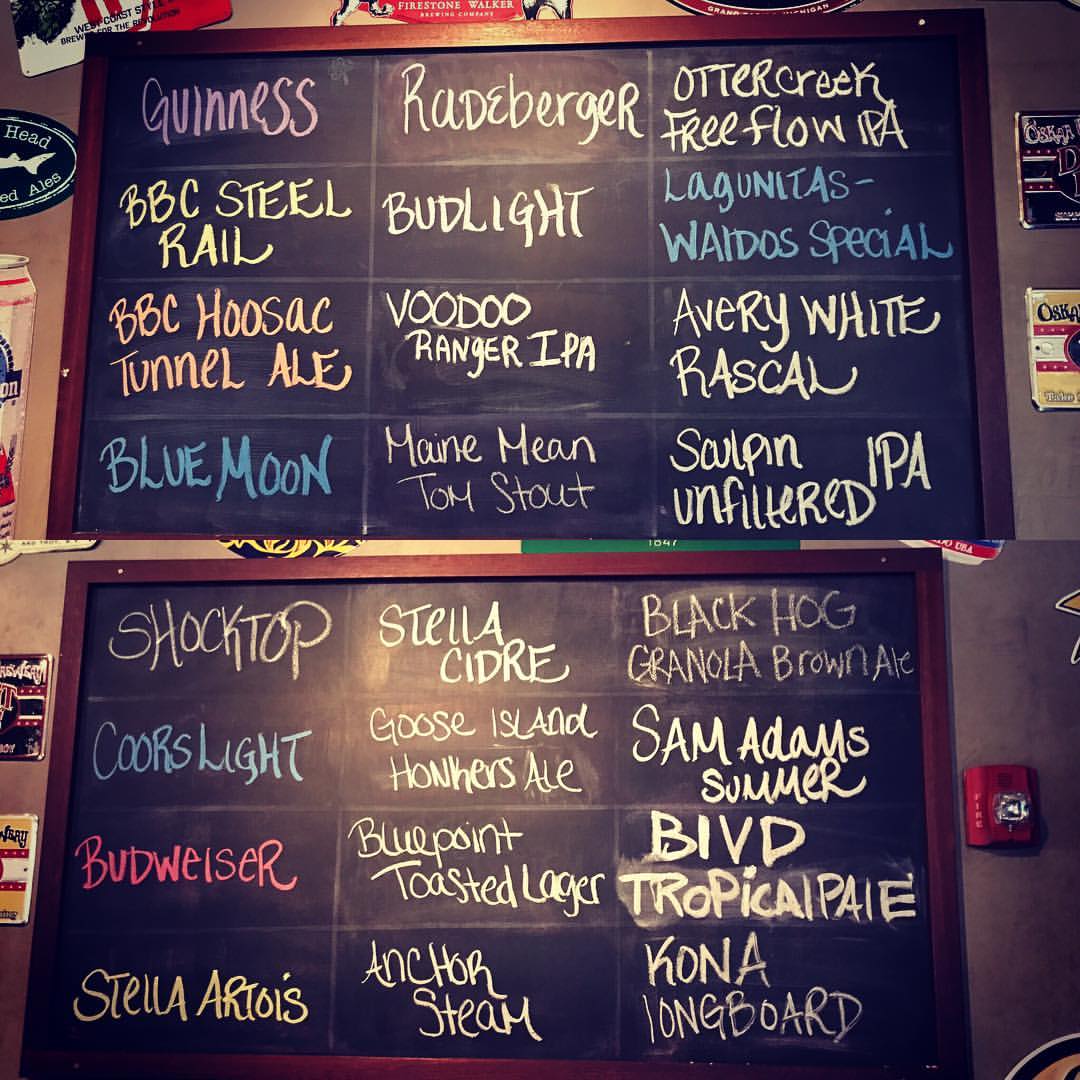 WEST COAST STYLE
FOR THE REVOLUTION
FIRESTONE WALKER
BREWING COMPANY
Head
Ales
GUINNESS
RADEberger
OTTERCreek
Freeflow IPA
BBC STEEL
RAIL
BUDLIGHT
LAGUNITAS-
WALDOS SPECIAL
BBC HOOSAC
TUNNEL ALE
VOODOO
RANGER IPA
AVERY WHITE
RASCAL
BLUE MOON
Maine Mean
Tom Stout
Sculpin
unfiltered IPA
1847
SHOCKTOP
STELLA
CIDRE
BLACK HOG
GRANOLA Brown Ale
COORS LIGHT
GOOSE ISLAND
HONKERS ALE
SAM Adams
SUMMER
BUDWEISER
Bluepoint
Toasted Lager
BLVD
TROPICAL PALE
STELLA ARTOIS
ANCHOR
STEAM
KONA
LONGBOARD
FIRE